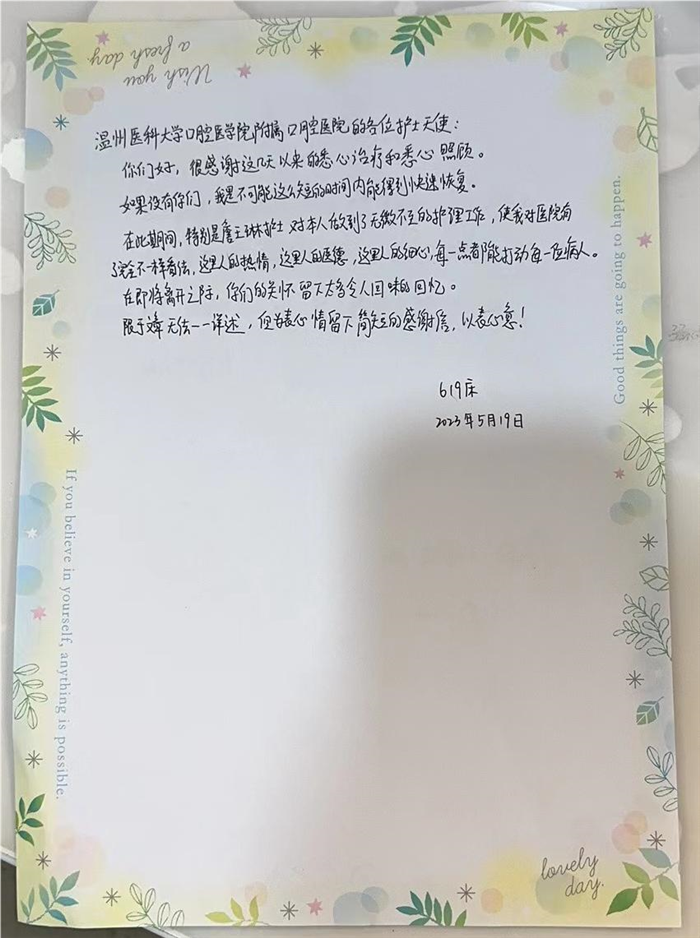 Wish you
a fresh day
温州医科大学口腔医学院附属口腔医院的各位护士天使：
你们好，很感谢这几天以来的悉心治疗和悉心照顾。
如果没有你们，我是不可能这么短的时间内能得到快速恢复。
在此期间，特别是詹王琳护士对本人做到了无微不至的护理工作，使我对医院有
了完全不一样看法，这里人的热情，这里人的医德，这里人的细心，每一点都能打动每一位病人。
在即将离开之际，你们的关怀留下太多令人回味的回忆。
限于 无法一一详述，但为表心情留下简短的感谢信，以表心意！
619床
2023年5月19日
Good things are going to happen.
If you believe in yourself, anything is possible.
lovely
day.